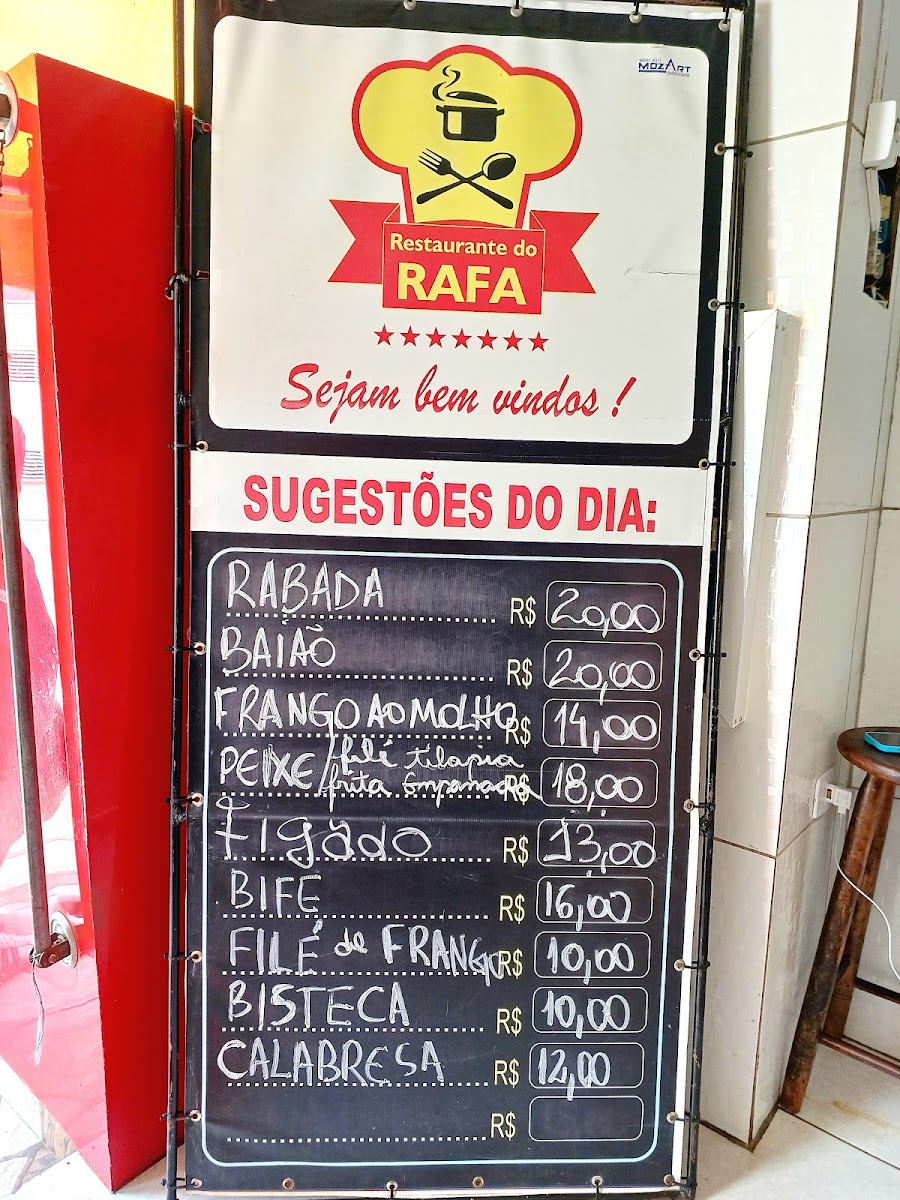 MOZART
Restaurante do
RAFA
Sejam bem vindos !
SUGESTÕES DO DIA:
RABADA R$ 20,00
BAIÃO R$ 20,00
FRANGO AO MOLHO R$ 14,00
PEIXE / filé tilapia
frita Empanada R$ 18,00
Figado R$ 13,00
BIFE R$ 16,00
FILÉ de FRANGO R$ 10,00
BISTECA R$ 10,00
CALABRESA R$ 12,00
R$